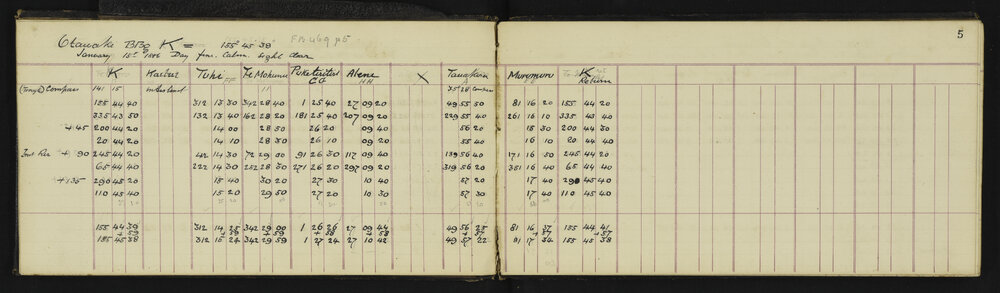 5
Otawake BBg K = 155° 45 38 FB 469 p5
January 15th 1886 Day fine. Calm. Light clear
K Tuhi Te Mokumu Puketutu Abene X Murumuru K
CG HH Return
Compass 141 15 11 35° 28 Compass
155 44 40 312 13 30 342 28 40 1 25 40 27 09 20 49 55 50 81 16 20 155 44 20
335 43 50 132 13 40 162 28 20 181 25 40 207 09 20 229 55 40 261 16 10 335 43 40
+45 200 44 20 14 00 28 50 26 20 09 40 56 20 18 30 200 44 30
20 44 20 14 10 28 30 26 10 09 20 55 40 16 10 20 44 40
+ 90 245 44 20 42 14 30 72 29 00 91 26 30 117 09 40 139 56 40 171 16 50 245 44 20
65 44 40 222 14 30 252 28 30 271 26 20 297 09 20 319 56 20 351 16 40 65 44 40
+135 290 45 20 15 40 30 20 27 30 10 40 57 20 17 40 290 45 40
110 45 40 15 20 29 50 27 20 10 40 57 30 17 40 110 45 40
155 44 39 312 14 25 342 29 00 1 26 26 27 09 44 49 56 25 81 16 37 155 44 41
+59 +59 +59 +58 +58 +57 +57 +57
155 45 38 312 15 24 342 29 59 1 27 24 27 10 42 49 57 22 81 17 34 155 45 38